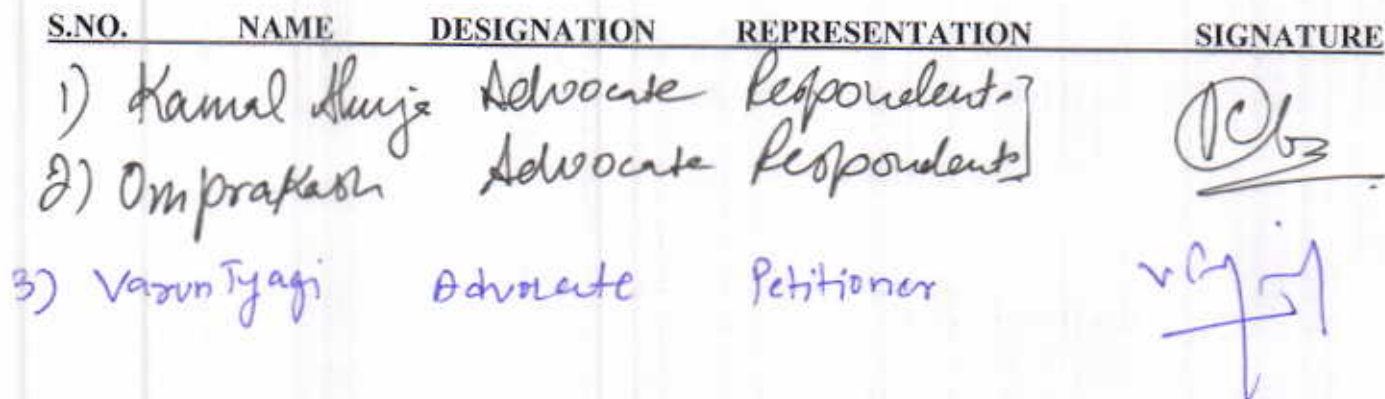 S.NO. NAME DESIGNATION REPRESENTATION SIGNATURE
1) Kamal Ahuja Advocate Respondents
2) Omprakash Advocate Respondents
3) Varun Tyagi Advocate Petitioner